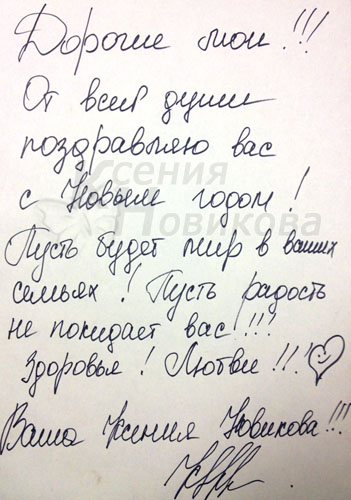 Дорогие мои!!!
От всей души
поздравляю вас
с Новым годом!
Ксения
Новикова
Пусть будет мир в ваших
семьях! Пусть радость
не покидает вас!!!
Здоровья! Любви!!!
Ваша Ксения Новикова!!!